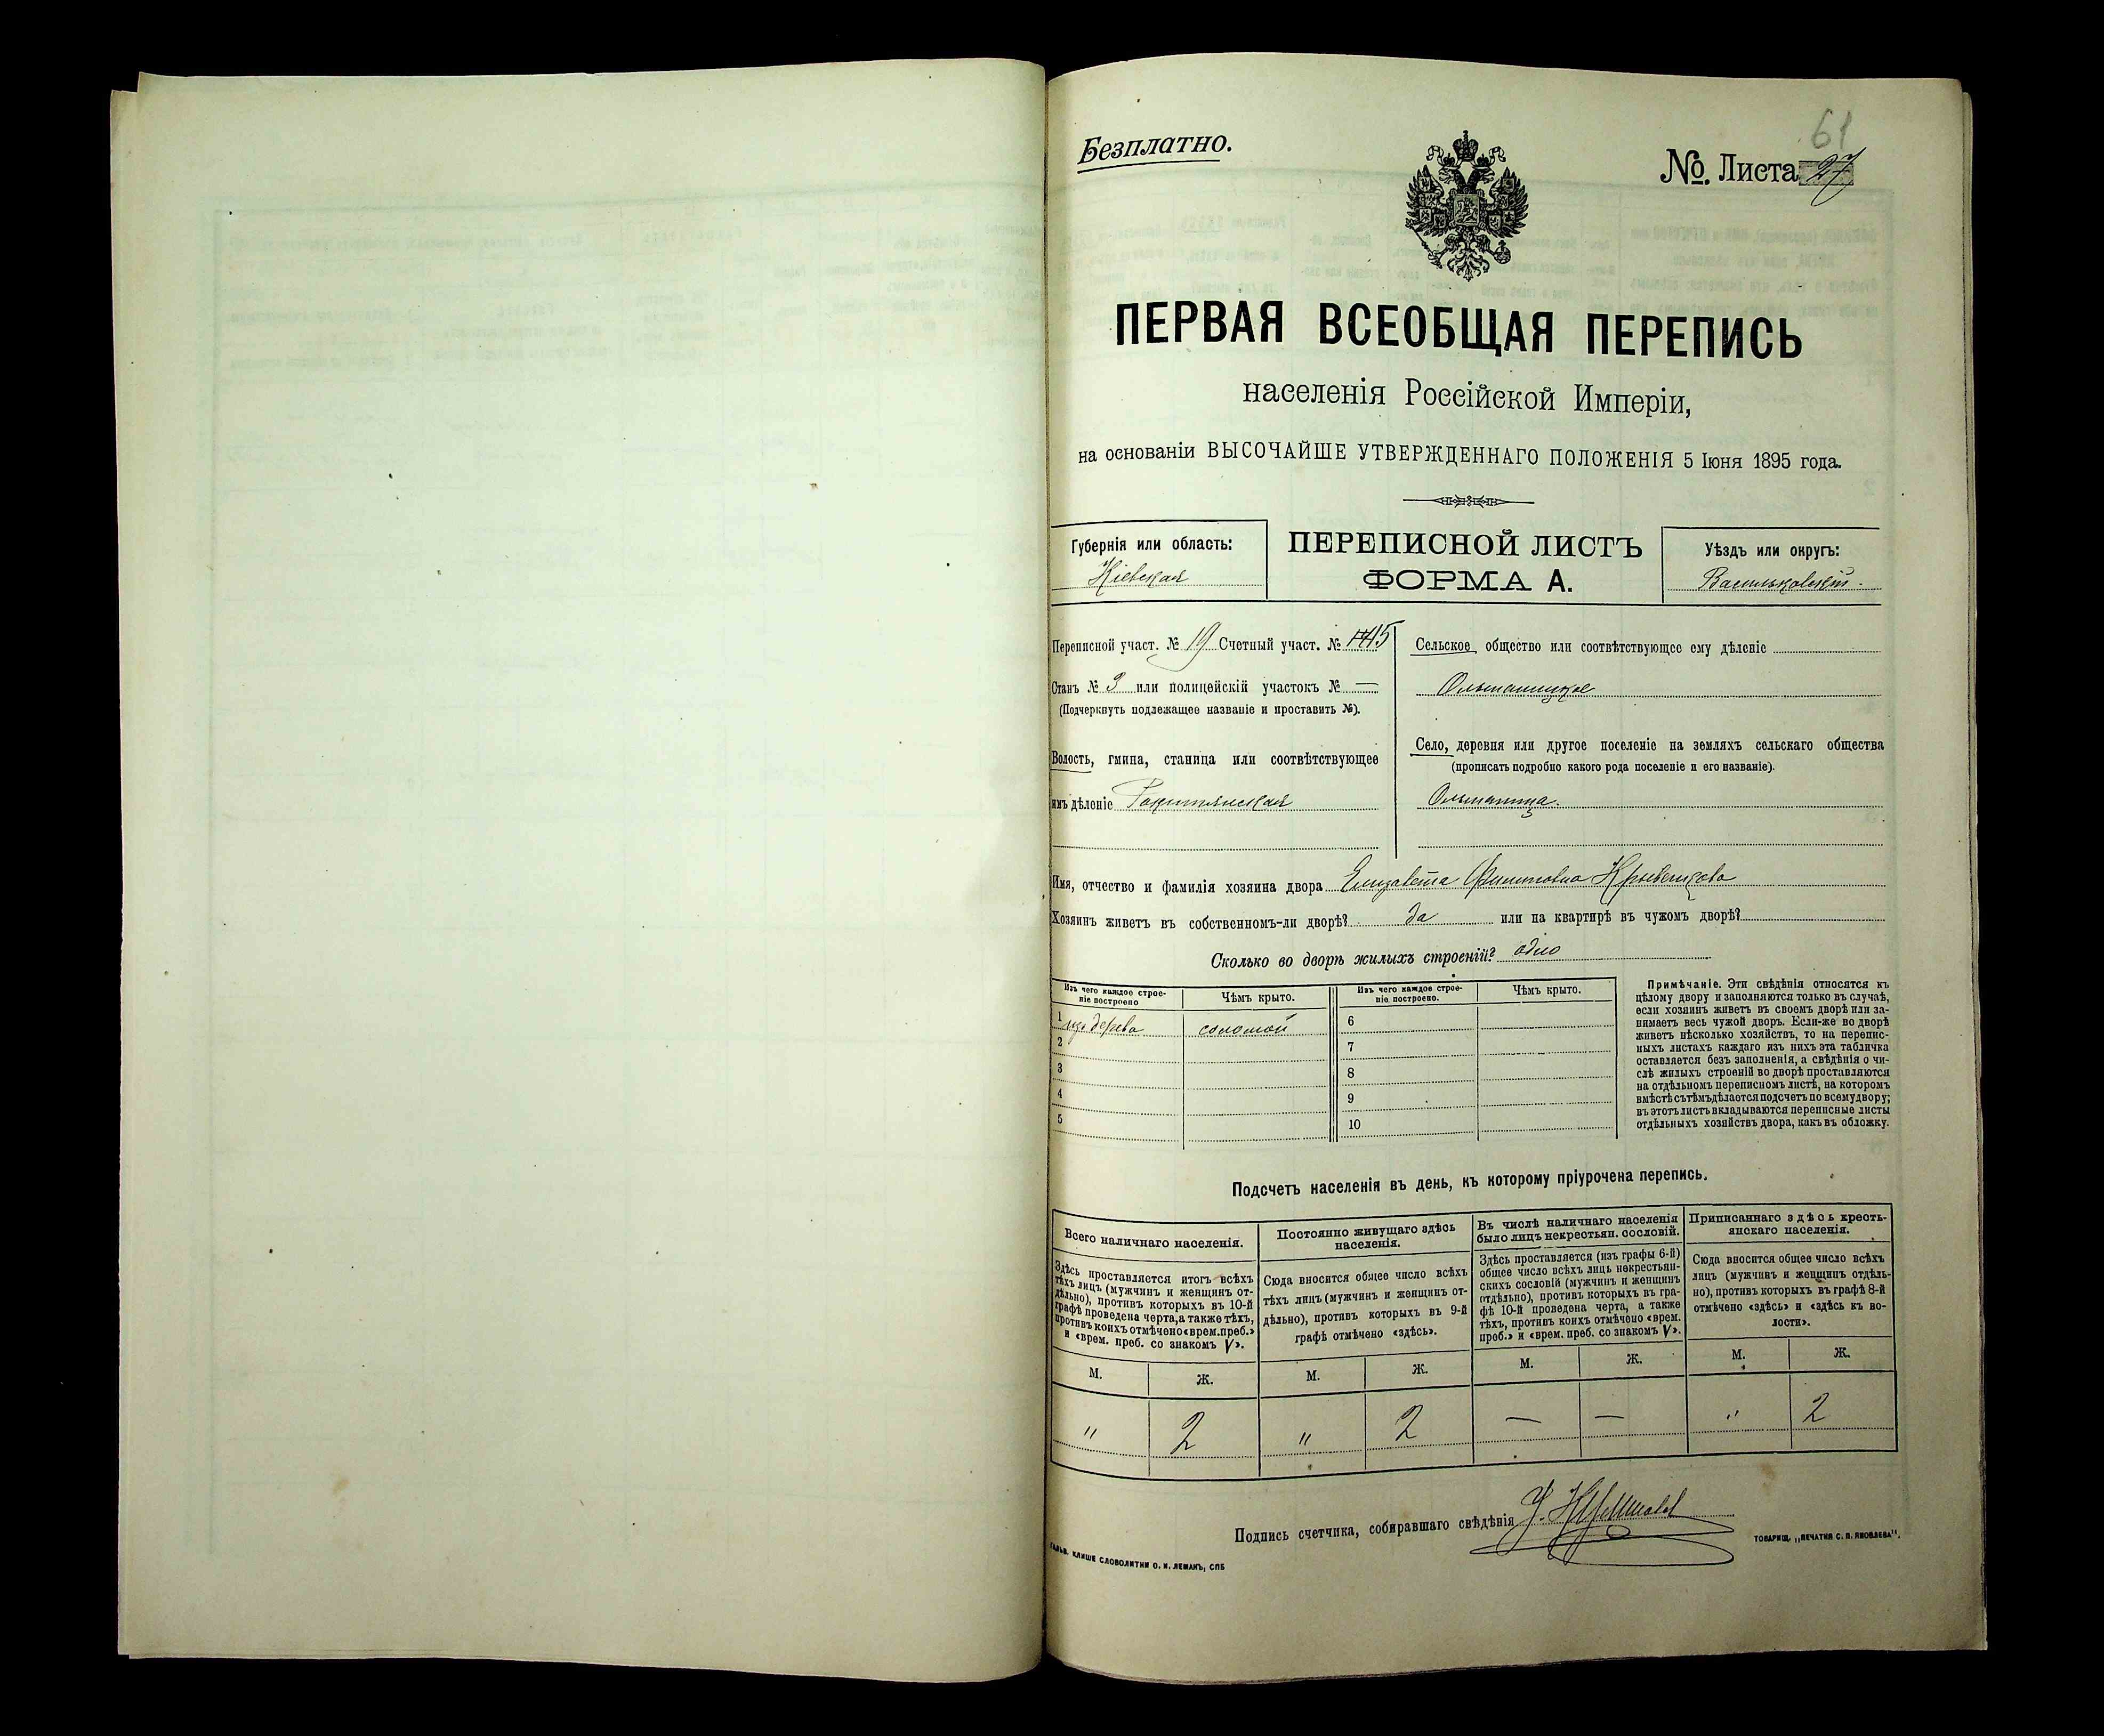 61
Безплатно.
№. Листа 27
ПЕРВАЯ ВСЕОБЩАЯ ПЕРЕПИСЬ
населенія Россійской Имперіи,
на основаніи ВЫСОЧАЙШЕ УТВЕРЖДЕННАГО ПОЛОЖЕНІЯ 5 Іюня 1895 года.
Губернія или область:
Кіевская
ПЕРЕПИСНОЙ ЛИСТЪ
ФОРМА А.
Уѣздъ или округъ:
Васильковскій.
Переписной участ. № 19 Счетный участ. №
Станъ № 3 или полицейскій участокъ № —
(Подчеркнуть подлежащее названіе и проставить №).
Волость, гмина, станица или соотвѣтствующее
имъ дѣленіе Ракитянская
Сельское общество или соотвѣтствующее ему дѣленіе
Ольшаницкое
Село, деревня или другое поселеніе на земляхъ сельскаго общества
(прописать подробно какого рода поселеніе и его названіе).
Ольшаница.
Имя, отчество и фамилія хозяина двора Елизавета Филиповна
Хозяинъ живетъ въ собственномъ-ли дворѣ? да или на квартирѣ въ чужомъ дворѣ?
Сколько во дворѣ жилыхъ строеній? одно
Изъ чего каждое строе-
ніе построено
Чѣмъ крыто.
Изъ чего каждое строе-
ніе построено.
Чѣмъ крыто.
1 изъ дерева соломой
2
3
4
5
6
7
8
9
10
Примѣчаніе. Эти свѣдѣнія относятся къ
цѣлому двору и заполняются только въ случаѣ,
если хозяинъ живетъ въ своемъ дворѣ или за-
нимаетъ весь чужой дворъ. Если-же во дворѣ
живетъ нѣсколько хозяйствъ, то на перепис-
ныхъ листахъ каждаго изъ нихъ эта табличка
оставляется безъ заполненія, а свѣдѣнія о чи-
слѣ жилыхъ строеній во дворѣ проставляются
на отдѣльномъ переписномъ листѣ, на которомъ
вмѣстѣ съ тѣмъ дѣлается подсчетъ по всему двору;
въ этотъ листъ вкладываются переписные листы
отдѣльныхъ хозяйствъ двора, какъ въ обложку.
Подсчетъ населенія въ день, къ которому пріурочена перепись.
Всего наличнаго населенія.
Здѣсь проставляется итогъ всѣхъ
тѣхъ лицъ (мужчинъ и женщинъ от-
дѣльно), противъ которыхъ въ 10-й
графѣ проведена черта, а также тѣхъ,
противъ коихъ отмѣчено «врем. преб.»
и «врем. преб. со знакомъ V».
Постоянно живущаго здѣсь
населенія.
Сюда вносится общее число всѣхъ
тѣхъ лицъ (мужчинъ и женщинъ от-
дѣльно), противъ которыхъ въ 9-й
графѣ отмѣчено «здѣсь».
Въ числѣ наличнаго населенія
было лицъ некрестьян. сословій.
Здѣсь проставляется (изъ графы 6-й)
общее число всѣхъ лицъ некрестьян-
скихъ сословій (мужчинъ и женщинъ
отдѣльно), противъ которыхъ въ гра-
фѣ 10-й проведена черта, а также
тѣхъ, противъ коихъ отмѣчено «врем.
преб.» и «врем. преб. со знакомъ V».
Приписаннаго здѣсь кресть-
янскаго населенія.
Сюда вносится общее число всѣхъ
лицъ (мужчинъ и женщинъ отдѣль-
но), противъ которыхъ въ графѣ 8-й
отмѣчено «здѣсь» и «здѣсь къ во-
лости».
М. Ж. М. Ж. М. Ж. М. Ж.
" 2 " 2 — — " 2
Подпись счетчика, собиравшаго свѣдѣнія
ГАЛЬВ. КЛИШЕ СЛОВОЛИТНИ О. И. ЛЕМАНЪ, СПБ
ТОВАРИЩ. „ПЕЧАТНЯ С. П. ЯКОВЛЕВА".